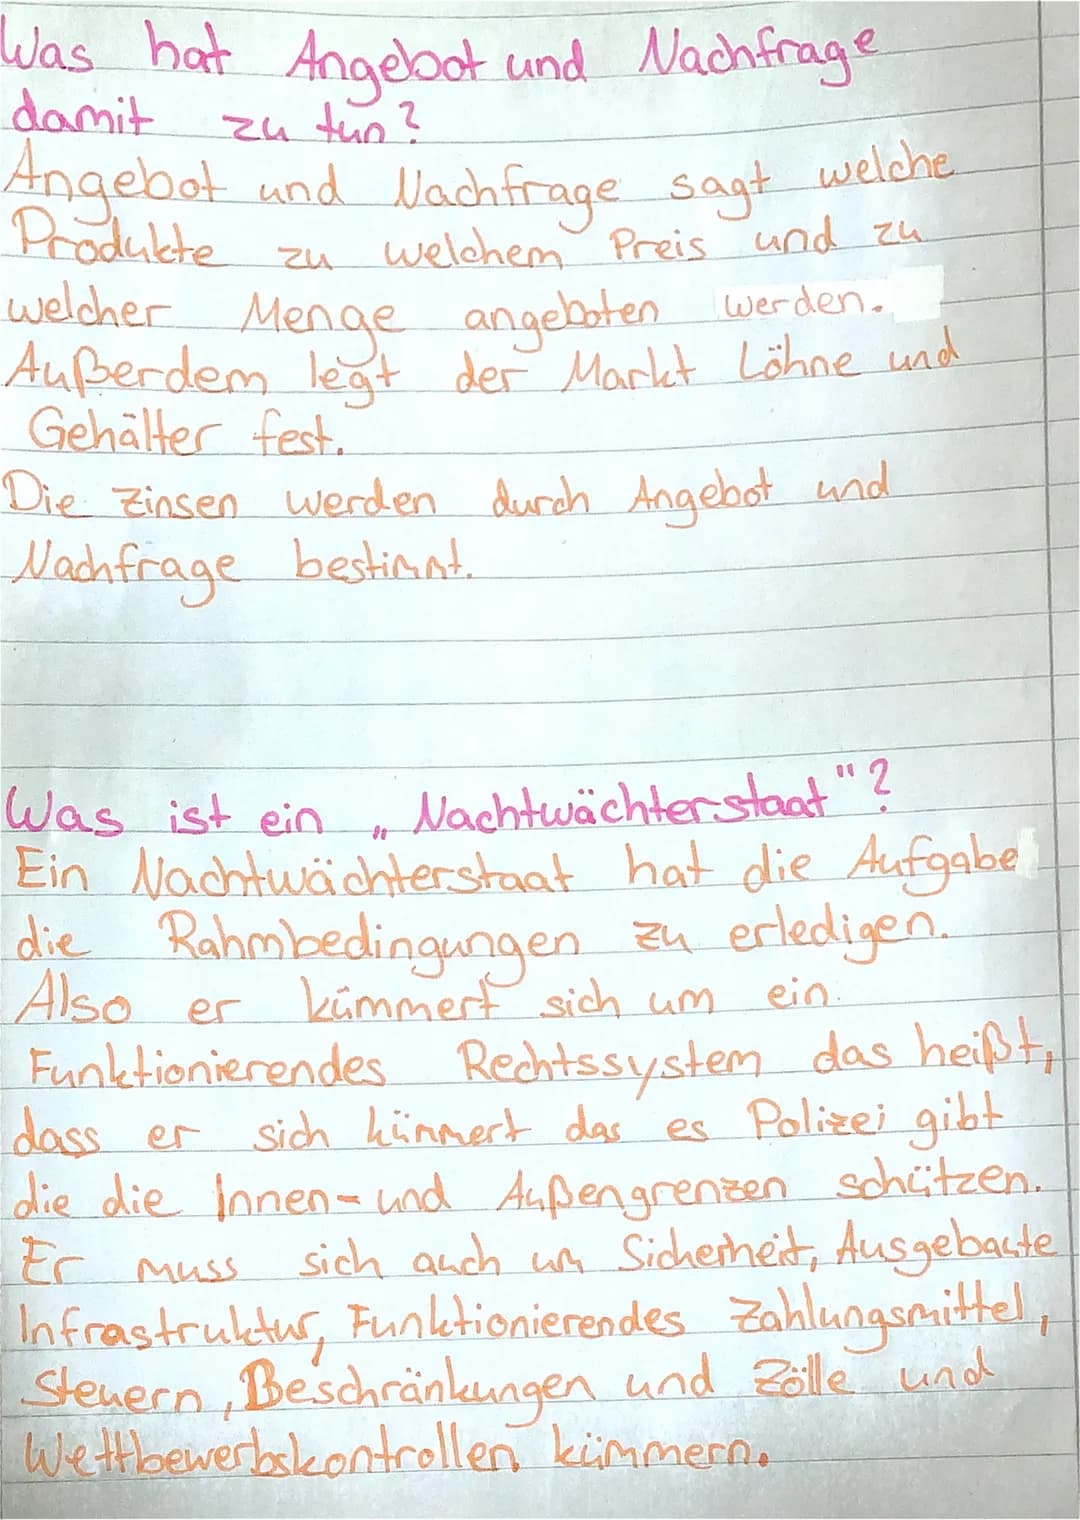 Was hat Angebot und Nachfrage
damit zu tun?
Angebot und Nachfrage sagt welche
Produkte zu welchem Preis und zu
welcher Menge angeboten werden.
Außerdem legt der Markt Löhne und
Gehälter fest.
Die Zinsen werden durch Angebot und
Nachfrage bestimmt.
Was ist ein „Nachtwächterstaat"?
Ein Nachtwächterstaat hat die Aufgabe
die Rahmbedingungen zu erledigen.
Also er kümmert sich um ein
Funktionierendes Rechtssystem das heißt,
dass er sich kümmert das es Polizei gibt
die die Innen- und Außengrenzen schützen.
Er muss sich auch um Sicherheit, Ausgebaute
Infrastruktur, Funktionierendes Zahlungsmittel,
Steuern, Beschränkungen und Zölle und
Wettbewerbskontrollen kümmern.